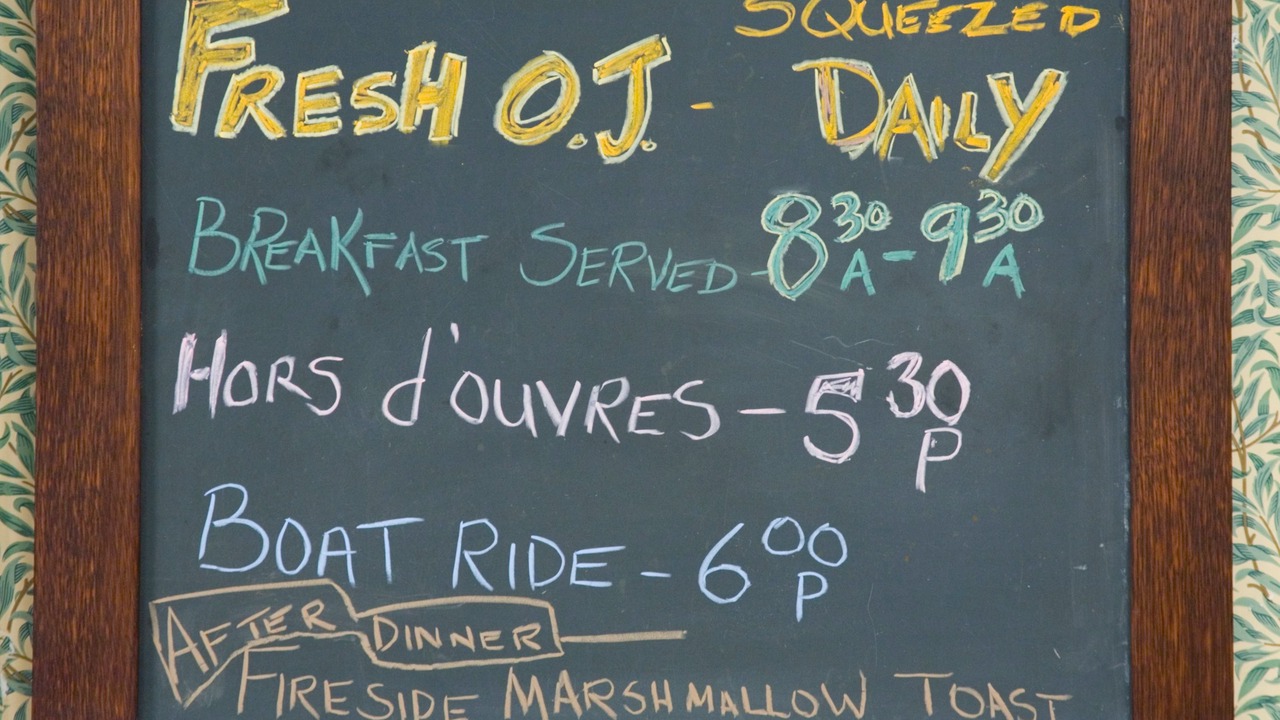 SQUEEZED
FRESH O.J. - DAILY
BREAKFAST SERVED - 8 30 A - 9 30 A
HORS d'OUVRES - 5 30 P
BOAT RIDE - 6 00 P
AFTER DINNER
FIRESIDE MARSHMALLOW TOAST